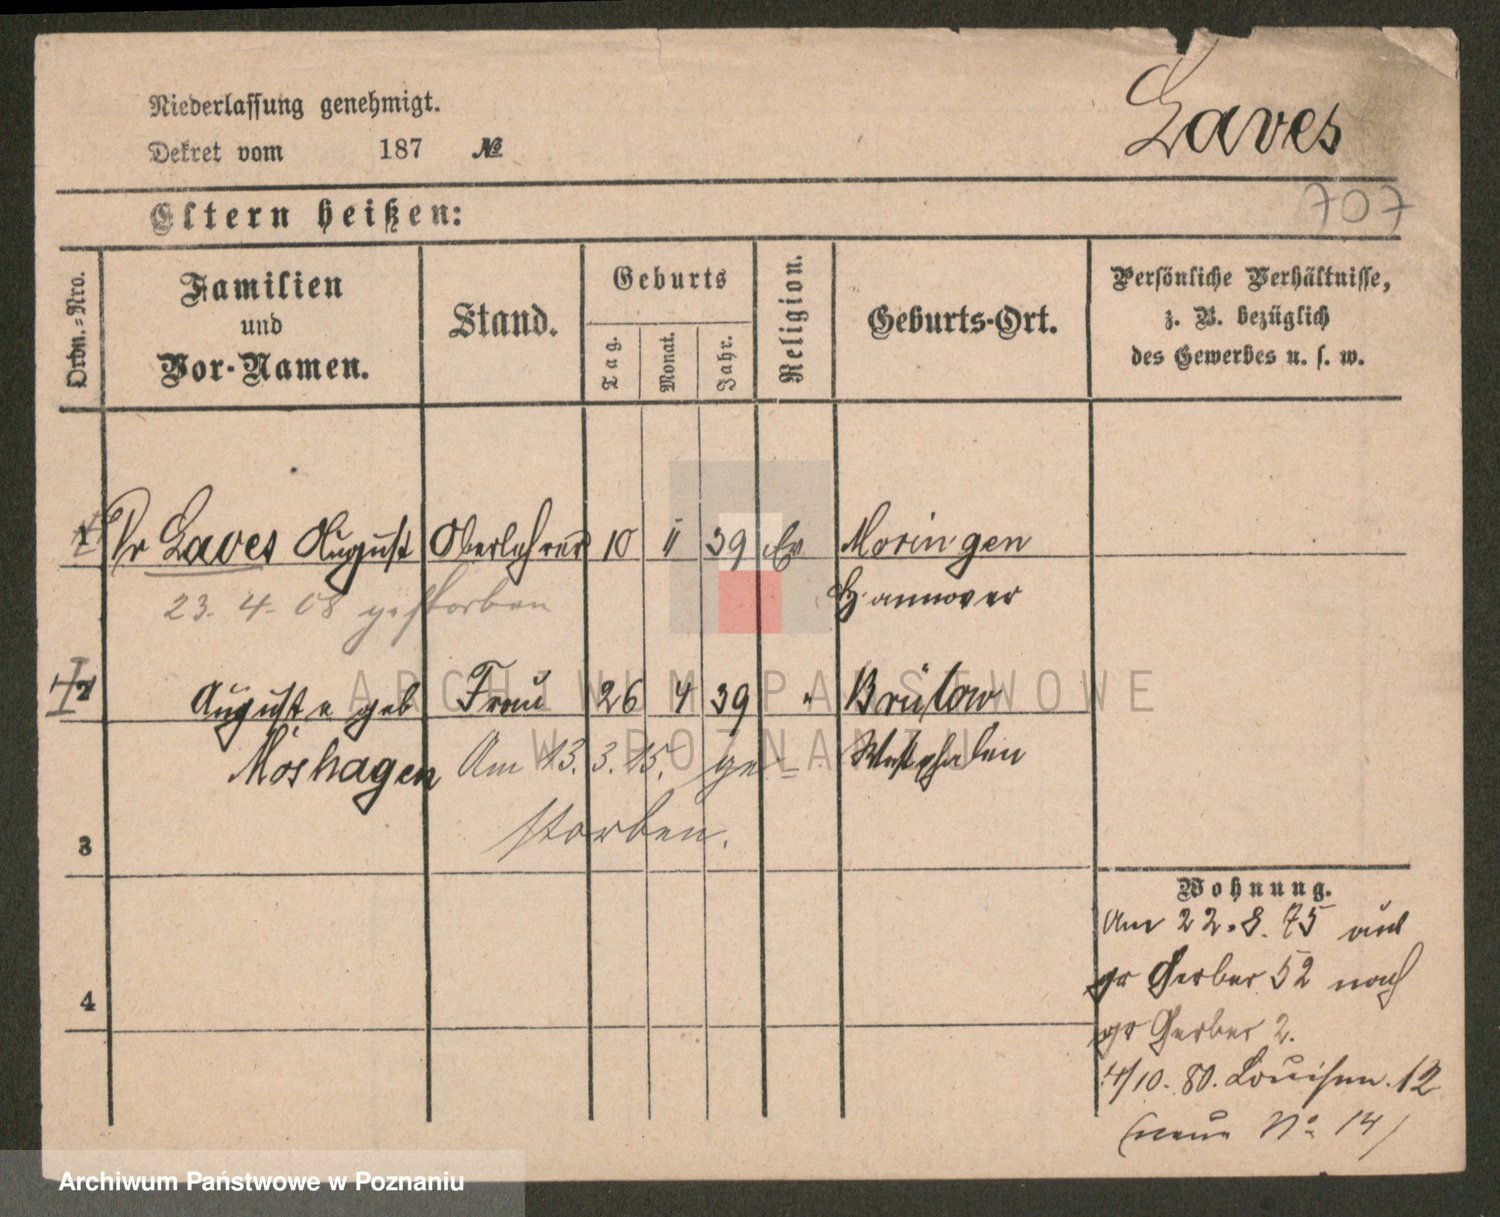 Niederlassung genehmigt.
Laves
Dekret vom 187 №
707
Eltern heißen:
Ordn.-Nro.
Familien
und
Vor-Namen.
Stand.
Geburts
Tag.
Monat.
Jahr.
Religion.
Geburts-Ort.
Persönliche Verhältnisse,
z. B. bezüglich
des Gewerbes u. s. w.
1 Dr Laves August Oberlehrer 10 11 39 Ev Moringen
Hannover
23. 4. 08 gestorben
2 Auguste geb Frau 26 4 39 " Brülow
Moshagen Westphalen
Am 13. 3. 15. ge=
storben.
3
4
Wohnung.
Am 22. 8. 75 aus
gr Gerber 52 nach
gr Gerber 2.
4/10. 80. Louisen. 12
(neue No 14)
ARCHIWUM PAŃSTWOWE
W POZNANIU
Archiwum Państwowe w Poznaniu